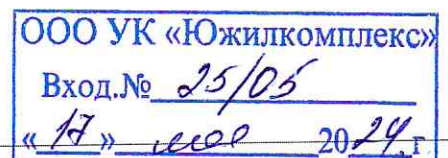 ООО УК «Южилкомплекс»
Вход.№ 25/05
«17» мая 2024 г